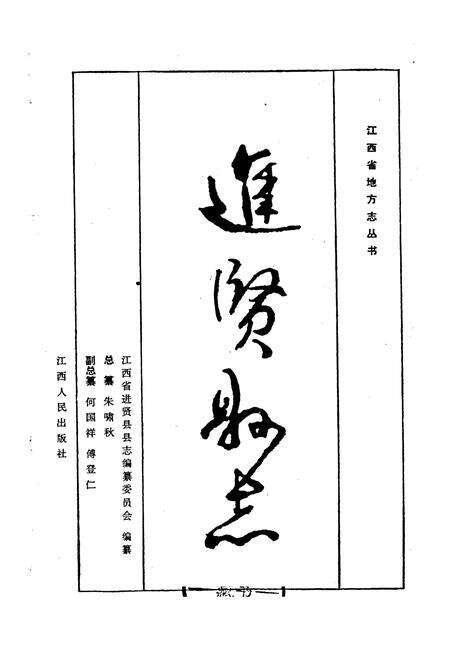 江西省地方志丛书
進贤县志
江西省进贤县县志编纂委员会 编纂
总纂 朱啸秋
副总纂 何国祥 傅登仁
江西人民出版社